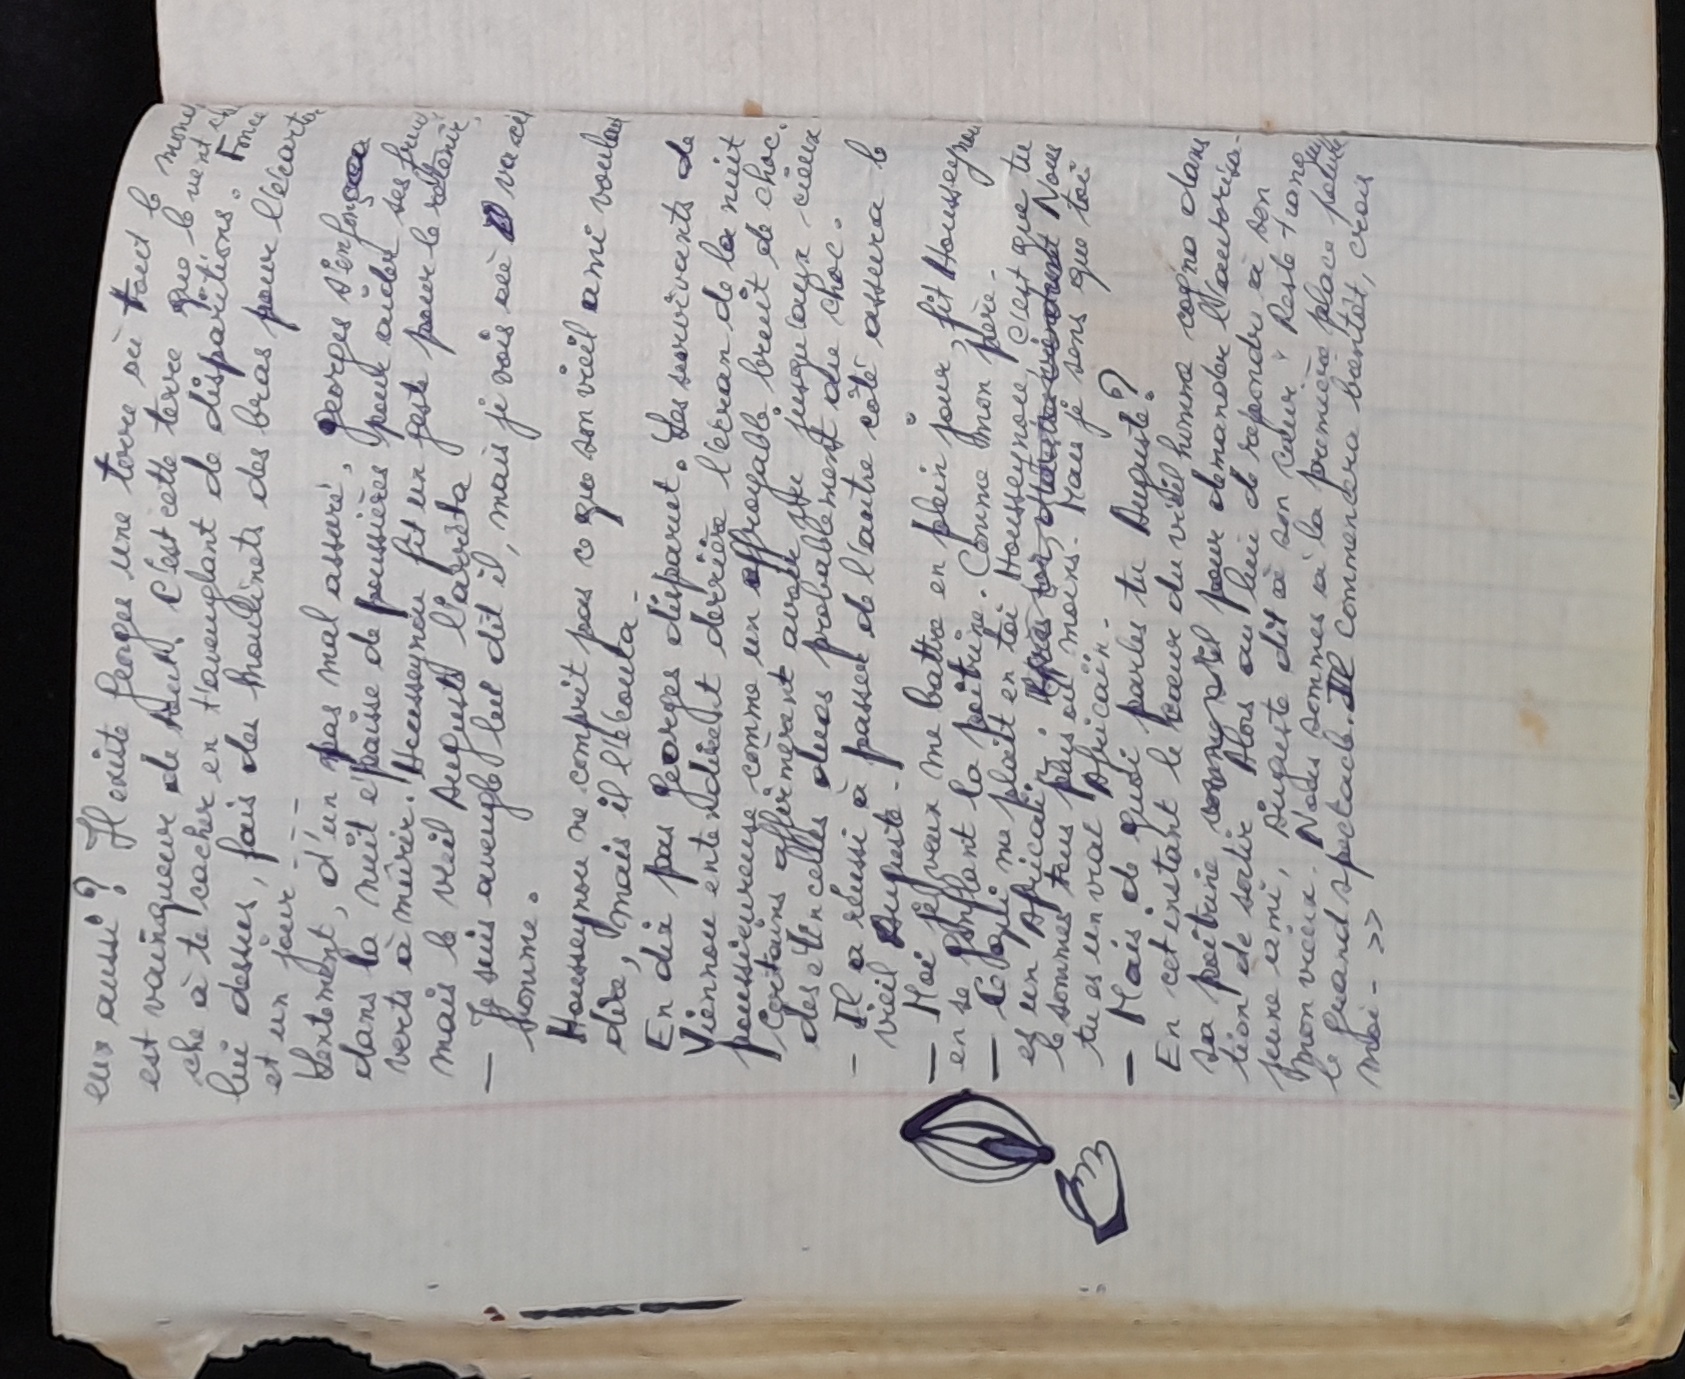 eux aussi ? Il existe Georges une terre où tout le mond
est vainqueur de tout. C'est cette terre que le vent ch
che à te cacher en t'aveuglant de disparitions. Fonce
lui dessus, fais des moulinets des bras pour l'écarte
et un jour - - -
Lentement, d'un pas mal assuré, Georges s'enfonça
dans la nuit épaisse de poussières pour aider ses frui
verts à mûrir. Housseynou fit un geste pour le retenir,
mais le vieil Auguste l'arrêta
— Je suis aveugle lui dit il, mais je vois où va cet
homme.
Housseynou ne comprit pas ce que son vieil ami voulai
dire, mais il l'écouta
En dix pas Georges disparut. Les survivants de
Viennou entendirent derrière l'écran de la nuit
poussiéreuse comme un effroyable bruit de choc.
Certains affirmèrent avoir vu jusqu'aux cieux
des étincelles dues probablement au choc.
- Il a réussi à passer de l'autre côté assura le
vieil Auguste -
— Moi je veux me battre en plein jour, fit Housseynou
en se gonflant la poitrine. Comme mon père -
— Ce qui me plaît en toi Housseynou, c'est que tu
es un Africain, Nous
le sommes tous plus ou moins. Mais je sens que toi
tu es un vrai Africain -
— Mais de quoi parles tu Auguste ?
En cet instant le coeur du vieil homme cogna dans
sa poitrine pour demander l'autorisa-
tion de sortir. Alors au lieu de répondre à son
jeune ami, Auguste dit à son coeur : Reste tranq
mon vieux. Nous sommes à la première place pour
le grand spectacle. Il commencera bientôt, crois
moi - >>